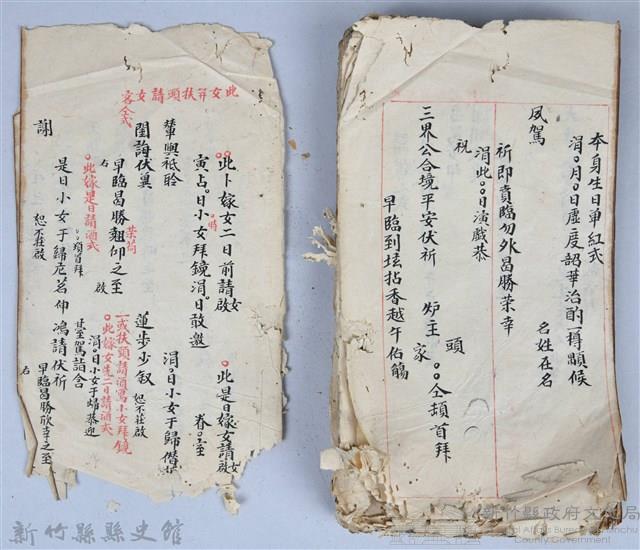 本身生日單紅式
涓。月。日虛度韶華治酌一樽顓候
夙駕 名姓在名
祈即賁臨勿外曷勝榮幸
涓此。。日演戲恭
祝 頭
三界公合境平安伏祈 炉主 。。仝頓首拜
家
早臨到坛拈香越午佑觴
此女笄扶頭請女客仝式
此卜嫁女二日前請女啟
寅占。日小女拜鏡涓。日敢邀
時
輦輿祗聆
閨誨伏冀
早臨曷勝翹仰之至
榮荷
右 啟
此嫁是日請酒式
。。頓首拜
是日小女于歸卮茗伸
謝 恕不莊啟
此是日嫁女請女啟
眷。。至
涓。日小女于歸僭
蓮步少敘 恕不莊啟
一或扶頭請酒寫小女拜鏡
此嫁女先二日請酒式
涓。日小女于歸恭迎
駕詣舍
鴻請伏祈
早臨曷勝欣幸之至
右
新竹縣縣史館
新竹縣政府文化局
Cultural Affairs Bureau of Hsinchu
County Government